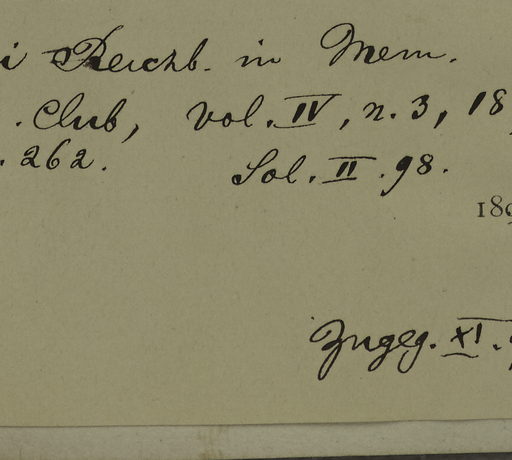 i Reichb. in Mem.
. Club, vol. IV, n. 3, 18
. 262. Sol. II. 98.
189
Zugeg. XI.